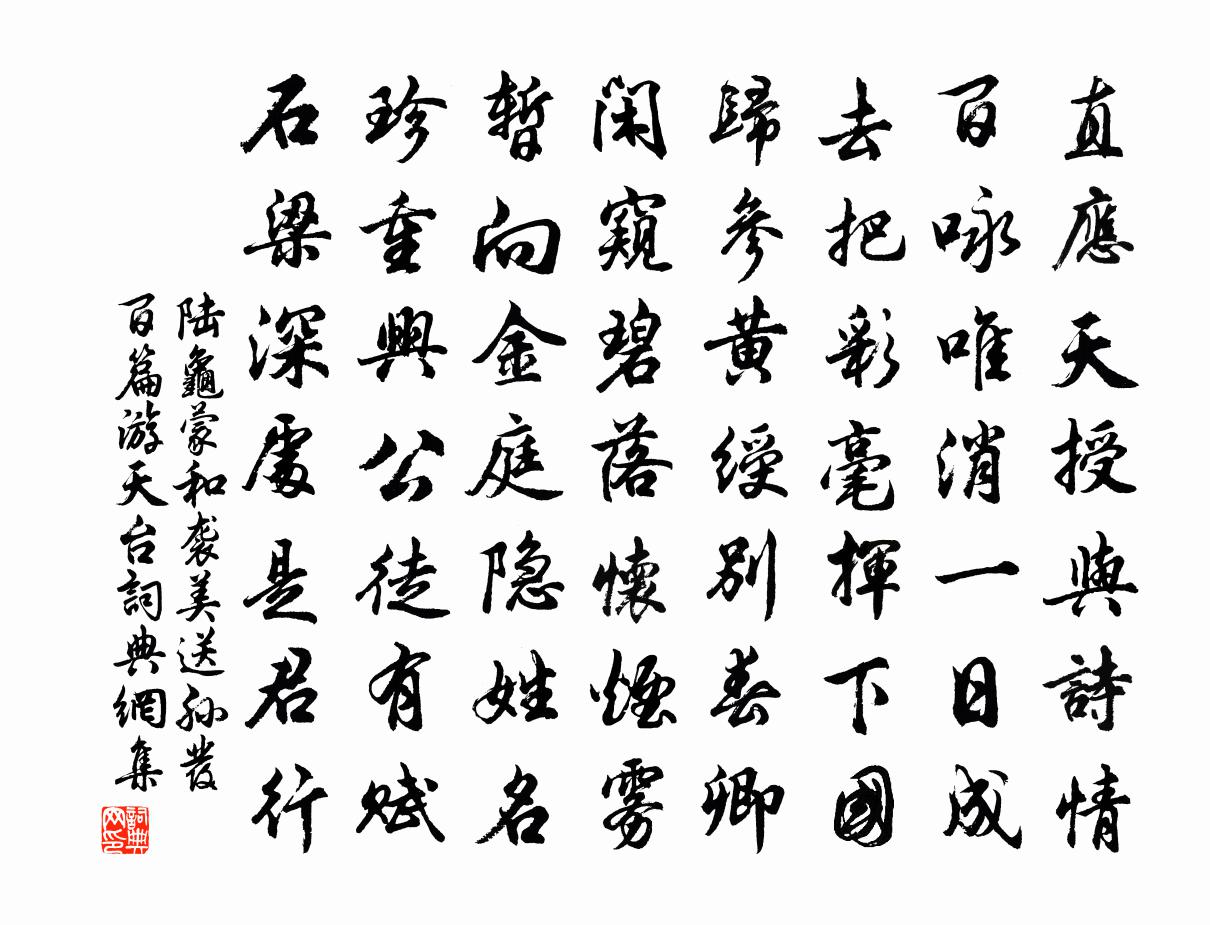 直應天授與詩情
百咏唯消一日成
去把彩毫揮下國
歸參黄綬別春卿
閑窺碧落懷煙霧
暫向金庭隐姓名
珍重興公徒有賦
石梁深處是君行
陆龜蒙和袭美送孙發
百篇游天台詞典網集
詞典
网印